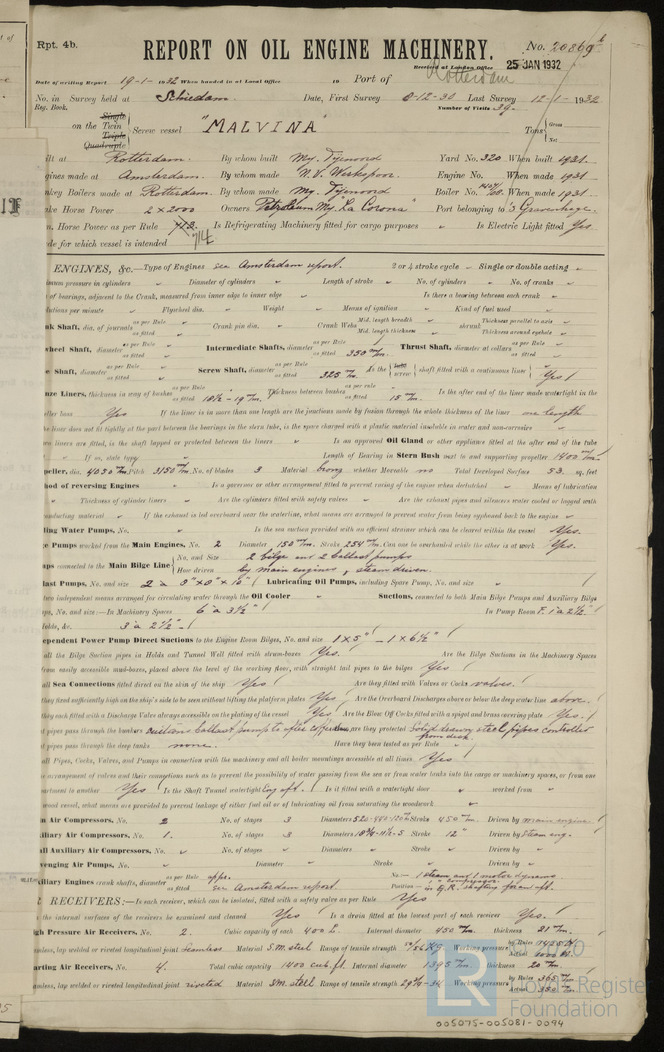 Rpt. 4b.
REPORT ON OIL ENGINE MACHINERY.
No. 20869
Received at London Office 25 JAN 1932
Date of writing Report 19-1-1932 When handed in at Local Office 19 Port of Rotterdam
No. in Survey held at Schiedam Date, First Survey 8-12-30 Last Survey 12-1-1932
Reg. Book. Number of Visits 39
Single
on the Twin Screw vessel "MALVINA" Tons Gross
Triple
Quadruple Net
Rotterdam. By whom built My. Fijenoord Yard No. 320 When built 1931.
gines made at Amsterdam. By whom made N.V. Werkspoor. Engine No. When made 1931
nkey Boilers made at Rotterdam. By whom made My. Fijenoord Boiler No. When made 1931
ke Horse Power 2 x 2000 Owners Petroleum My. "La Corona" Port belonging to 's Gravenhage.
. Horse Power as per Rule 712 714 Is Refrigerating Machinery fitted for cargo purposes " Is Electric Light fitted Yes
de for which vessel is intended
ENGINES, &c.—Type of Engines see Amsterdam report. 2 or 4 stroke cycle " Single or double acting "
mum pressure in cylinders " Diameter of cylinders " Length of stroke " No. of cylinders " No. of cranks "
of bearings, adjacent to the Crank, measured from inner edge to inner edge " Is there a bearing between each crank "
lutions per minute " Flywheel dia. " Weight " Means of ignition " Kind of fuel used "
nk Shaft, dia. of journals as per Rule as fitted Crank pin dia. Crank Webs Mid. length breadth Mid. length thickness shrunk Thickness parallel to axis Thickness around eyehole
wheel Shaft, diameter as per Rule as fitted Intermediate Shafts, diameter as per Rule as fitted 350 m/m. Thrust Shaft, diameter at collars as per Rule as fitted
e Shaft, diameter as per Rule as fitted Screw Shaft, diameter as per Rule as fitted 325 m/m Is the screw shaft fitted with a continuous liner Yes
nze Liners, thickness in way of bushes as per Rule as fitted 18½ - 19 m/m. Thickness between bushes as per rule as fitted 15 m/m. Is the after end of the liner made watertight in the
eller boss Yes If the liner is in more than one length are the junctions made by fusion through the whole thickness of the liner one length
he liner does not fit tightly at the part between the bearings in the stern tube, is the space charged with a plastic material insoluble in water and non-corrosive
o liners are fitted, is the shaft lapped or protected between the liners Is an approved Oil Gland or other appliance fitted at the after end of the tube
If so, state type Length of Bearing in Stern Bush next to and supporting propeller 1400 m/m
peller, dia. 4050 m/m Pitch 3150 m/m No. of blades 3 Material bronze whether Moveable no Total Developed Surface 53. sq. feet
hod of reversing Engines " Is a governor or other arrangement fitted to prevent racing of the engine when declutched " Means of lubrication
" Thickness of cylinder liners " Are the cylinders fitted with safety valves " Are the exhaust pipes and silencers water cooled or lagged with
conducting material " If the exhaust is led overboard near the waterline, what means are arranged to prevent water from being siphoned back to the engine "
ling Water Pumps, No. " Is the sea suction provided with an efficient strainer which can be cleared within the vessel Yes.
e Pumps worked from the Main Engines, No. 2 Diameter 150 m/m. Stroke 254 m/m. Can one be overhauled while the other is at work Yes.
ps connected to the Main Bilge Line No. and Size 2 bilge and 2 ballast pumps
How driven by main engines, steam driven.
last Pumps, No. and size 2 Lubricating Oil Pumps, including Spare Pump, No. and size "
two independent means arranged for circulating water through the Oil Cooler " Suctions, connected to both Main Bilge Pumps and Auxiliary Bilge
ps, No. and size:—In Machinery Spaces 6 à 3½" In Pump Room F. 1 à 2½"
olds, &c. 3 à 2½"
ependent Power Pump Direct Suctions to the Engine Room Bilges, No. and size 1 x 5" - 1 x 6½"
all the Bilge Suction pipes in Holds and Tunnel Well fitted with strum-boxes Yes. Are the Bilge Suctions in the Machinery Spaces
from easily accessible mud-boxes, placed above the level of the working floor, with straight tail pipes to the bilges Yes
all Sea Connections fitted direct on the skin of the ship Yes Are they fitted with Valves or Cocks valves.
they fixed sufficiently high on the ship's side to be seen without lifting the platform plates Yes Are the Overboard Discharges above or below the deep water line above.
they each fitted with a Discharge Valve always accessible on the plating of the vessel Yes Are the Blow Off Cocks fitted with a spigot and brass covering plate Yes.
t pipes pass through the bunkers suctions ballast pump to after cofferdam are they protected solid drawn steel pipes controlled from deck.
t pipes pass through the deep tanks none. Have they been tested as per Rule "
all Pipes, Cocks, Valves, and Pumps in connection with the machinery and all boiler mountings accessible at all times Yes
e arrangement of valves and their connections such as to prevent the possibility of water passing from the sea or from water tanks into the cargo or machinery spaces, or from one
artment to another Yes Is the Shaft Tunnel watertight Eng. aft. Is it fitted with a watertight door " worked from "
wood vessel, what means are provided to prevent leakage of either fuel oil or of lubricating oil from saturating the woodwork "
n Air Compressors, No. 2 No. of stages 3 Diameters Stroke 450 m/m. Driven by main engine
iliary Air Compressors, No. 1. No. of stages 3 Diameters Stroke 12" Driven by steam eng.
ll Auxiliary Air Compressors, No. " No. of stages " Diameters " Stroke " Driven by "
venging Air Pumps, No. " Diameter " Stroke " Driven by "
iliary Engines crank shafts, diameter as per Rule appr. as fitted see Amsterdam report. No. 1 steam and 1 motor dynamo
Position in E.R. shafting fore and aft.
RECEIVERS:—Is each receiver, which can be isolated, fitted with a safety valve as per Rule Yes
the internal surfaces of the receivers be examined and cleaned Yes Is a drain fitted at the lowest part of each receiver Yes.
gh Pressure Air Receivers, No. 2. Cubic capacity of each 400 L. Internal diameter 450 m/m. thickness 21 m/m.
mless, lap welded or riveted longitudinal joint seamless Material S.M. steel Range of tensile strength Working pressure by Rules Actual
arting Air Receivers, No. 4. Total cubic capacity 1400 cub. ft. Internal diameter 1395 m/m. thickness 20 m/m
mless, lap welded or riveted longitudinal joint riveted Material S.M. steel Range of tensile strength Working pressure by Rules 365 Actual 350
© 2020
Lloyd's Register
Foundation
LR
005075-005081-0094